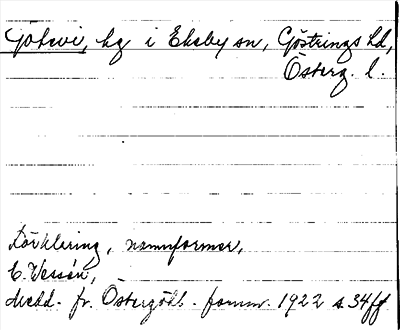 Götevi, hg i Ekeby sn, Göstrings hd,
Österg. l.
Förklaring, namnformer,
E. Wessén,
Medd. fr. Östergötl. fornm. 1922 s. 34 ff